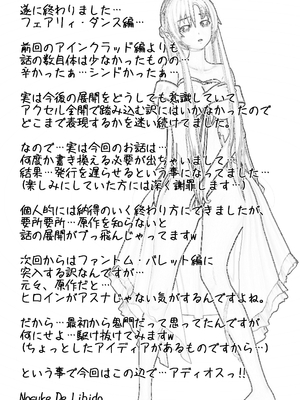 遂に終わりました…
フェアリィ・ダンス編…
前回のアインクラッド編よりも
話の数自体は少なかったものの…
辛かったぁ…シンドかったぁ…
実は今後の展開をどうしても意識していて
アクセル全開で踏み込む訳にはいかなかったので
どこまで表現するかを迷い続けてました。
なので…実は今回のお話は…
何度か書き換える必要が出ちゃいまして…
結果…発行を遅らせるという事になってました…
(楽しみにしていた方には深く謝罪します…)
個人的には納得のいく終わり方にできましたが、
要所要所…原作を知らないと
話の展開がブッ飛んじゃってますw
次回からはファントム・バレット編に
突入する訳なんですが…
元々、原作だと…
ヒロインがアスナじゃない気がするんですよね。
だから…最初から鬼門だって思ってたんですが
何にせよ…駆け抜けてみますw
(ちょっとしたアイディアがあるものですから…)
という事で今回はこの辺で…アディオスっ!!
Nosuke De Libido